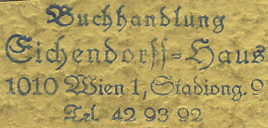 Buchhandlung
Eichendorff-Haus
1010 Wien 1, Stadiong. 9
Tel. 42 93 92